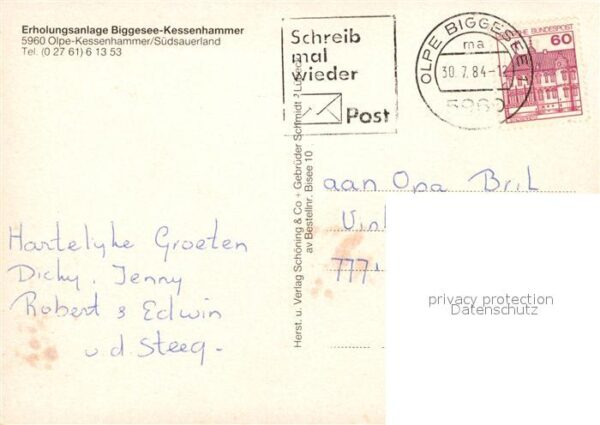 Erholungsanlage Biggesee-Kessenhammer
5960 Olpe-Kessenhammer/Südsauerland
Tel. (0 27 61) 6 13 53
Schreib
mal
wieder
Post
OLPE BIGGESEE 1
ma
30.7.84-12
5960
DEUTSCHE BUNDESPOST
60
Herst. u. Verlag Schöning & Co + Gebrüder Schmidt · Lübeck
av Bestellnr. Bisee 10
aan Opa Bril
Vin
777
Hartelyke Groeten
Dicky, Jenny
Robert & Edwin
v.d. Steeg.
privacy protection
Datenschutz